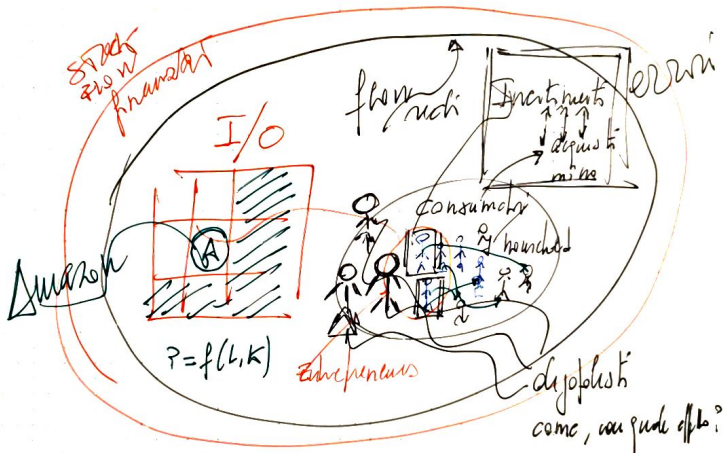 stock
flow
finanziari
I/O
flow
reali
Investimenti
acquisti
errori
consumatori
household
A
Amazon
P=f(L,K)
Entrepreneurs
oligopolisti
come, con quale effetto?